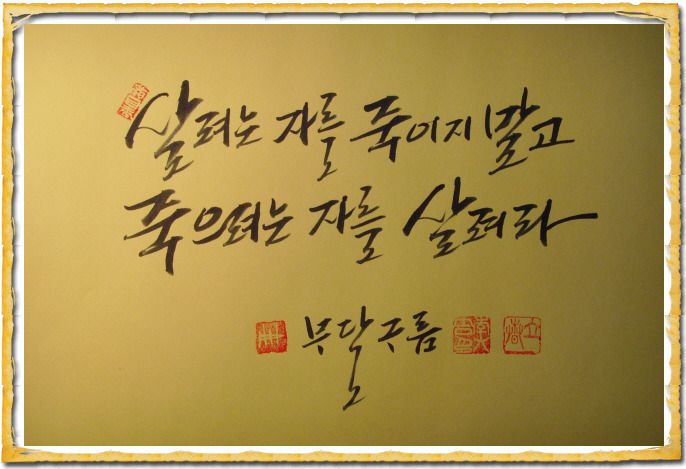 살려는 자를 죽이지 말고
죽으려는 자를 살려라
구름